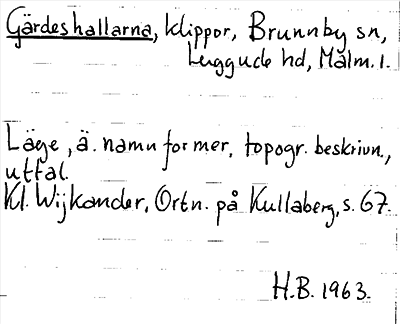 Gärdeshallarna, klippor, Brunnby sn,
Luggude hd, Malm. l.
Läge, ä. namnformer, topogr. beskrivn.,
uttal.
Kl. Wijkander, Ortn. på Kullaberg, s. 67.
H.B. 1963.